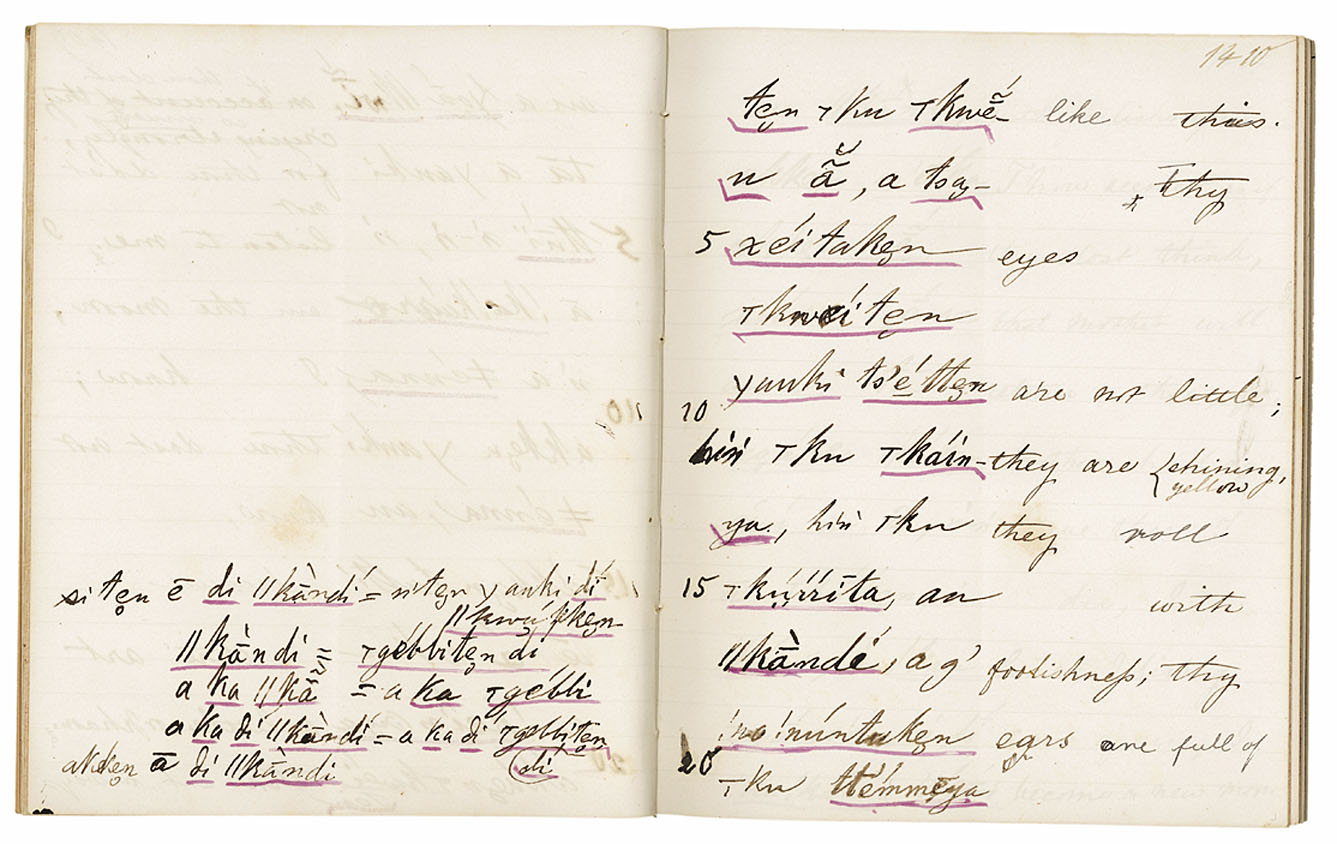 siten ē di ǁkàndí = siten yauki dí
ǁkwáǀkẹn
ǁkàndi = ⊤gébbitẹn di
a ka ǁkā̀ = a ka ⊤gébbi
a ka dí ǁkàndí = a ka dí ⊤gébbitẹn
(di)
akkẹn ā di ǁkàndi
1410
tẹn ⊤ku ⊤kwḗ̃- like this.
u ã̄, a tsạ- thy
5 xéítakẹn eyes
⊤kwéitẹn
10 yauki tsʼéttẹn are not little;
hiń ⊤ku ⊤káín- they are {shining, yellow
ya, hiń ⊤ku they roll
15 ⊤kúïïíta, au with
ǁkàndé, a gʼ foolishness; thy
!no!núntukẹn ears are full of
20 ⊤ku ttémmẹya